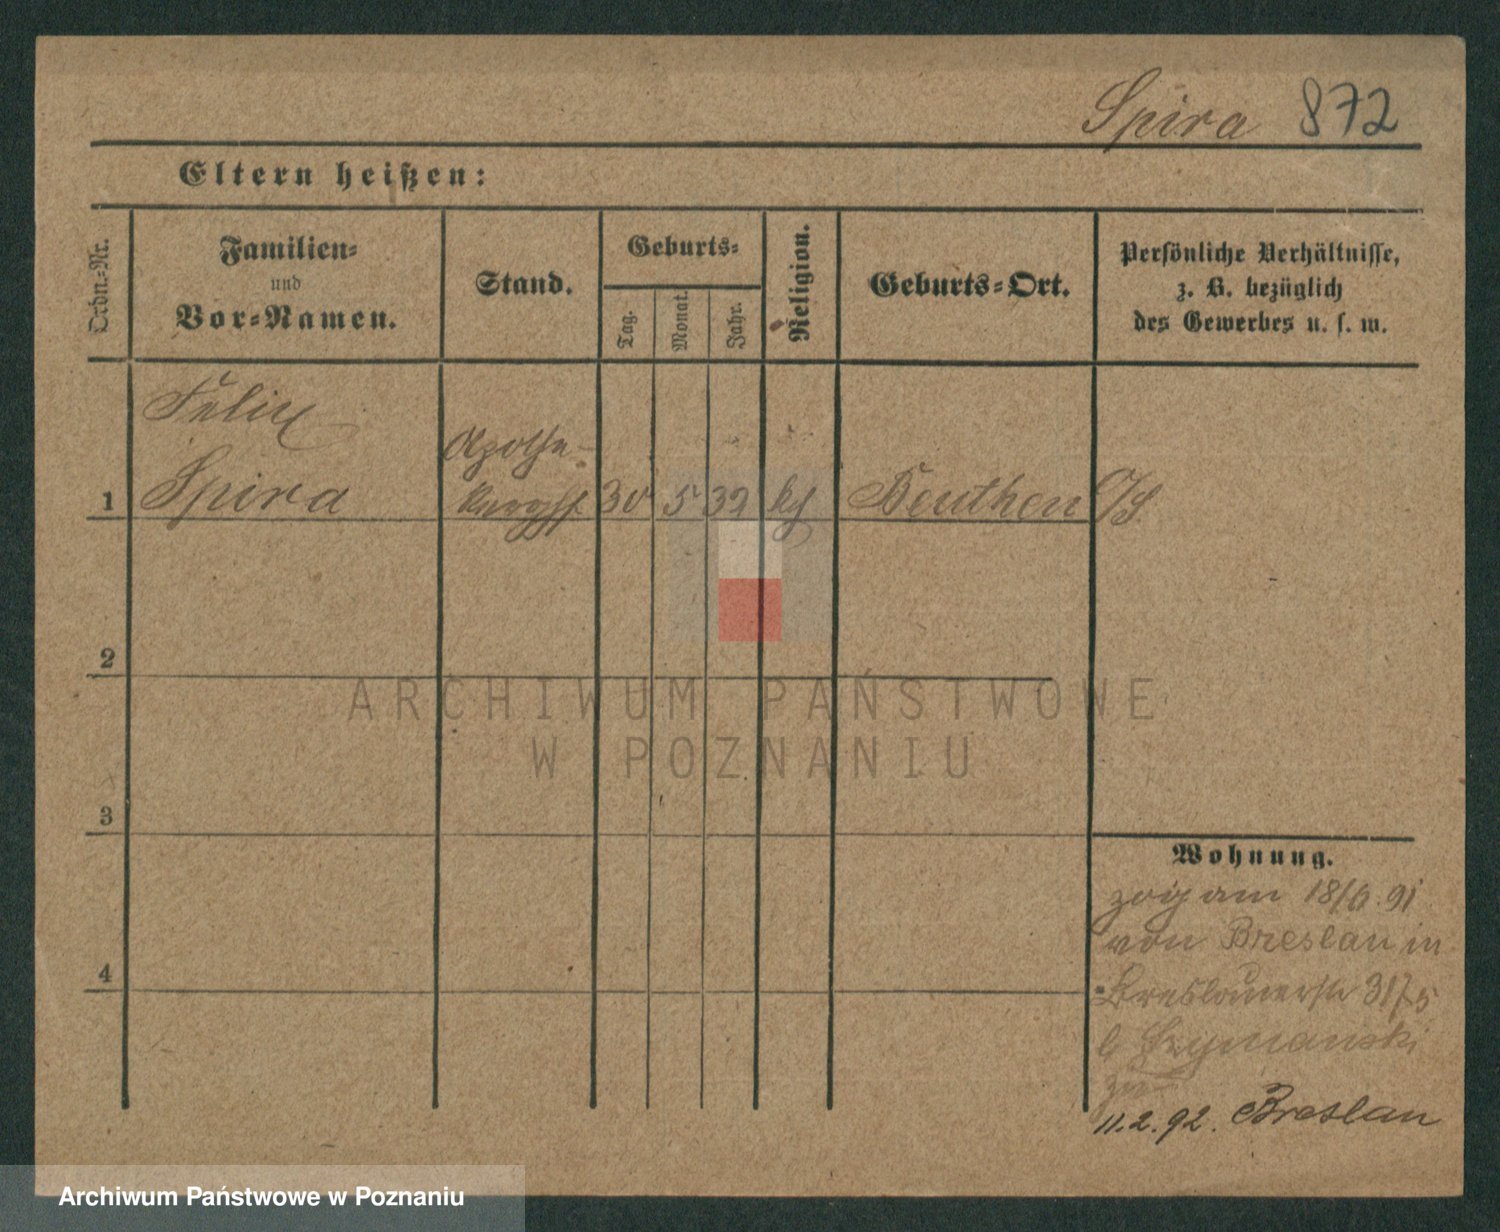 Spira 872
Eltern heißen:
Ordn.-Nr.
Familien-
und
Vor-Namen.
Stand.
Geburts-
Tag.
Monat.
Jahr.
Religion.
Geburts-Ort.
Persönliche Verhältnisse,
z. B. bezüglich
des Gewerbes u. s. w.
Felix
Apothe-
1 Spira 30 5 39 Beuthen O/S
2
3
4
Wohnung.
zog am 18/6.91
von Breslau in
Breslauerstr 31
b Szymanski
zu
11.2.92. Breslau
ARCHIWUM PAŃSTWOWE
W POZNANIU
Archiwum Państwowe w Poznaniu